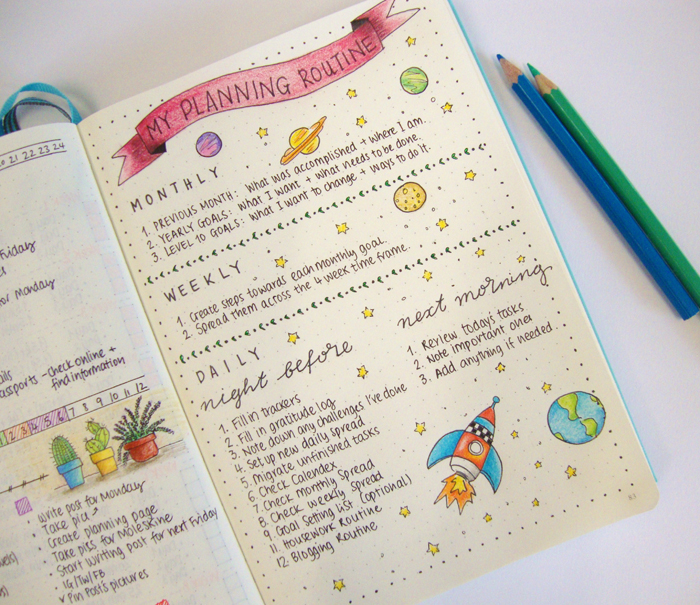 20 21 22 23 24
Friday
for Monday
- check online +
find information
7 8 9 10 11 12
Write post for Monday
Take pics
Create planning page
Take pics for Moleskine
Start writing post for next Friday
IG/TW/FB
Pin Post's pictures
MY PLANNING ROUTINE
MONTHLY
1. PREVIOUS MONTH: what was accomplished + where I am.
2. YEARLY GOALS: what I want + what needs to be done.
3. LEVEL 10 GOALS: what I want to change + ways to do it.
WEEKLY
1. Create steps towards each monthly goal.
2. Spread them across the 4 week time frame.
DAILY
night before
1. Fill in trackers
2. Fill in gratitude log
3. Note down any challenges I've done
4. Set up new daily spread
5. Migrate unfinished tasks
6. Check Calendex
7. Check monthly spread
8. Check weekly spread
9. Goal setting list (optional)
11. Housework Routine
12. Blogging Routine
next morning
1. Review today's tasks
2. Note important ones
3. Add anything if needed.